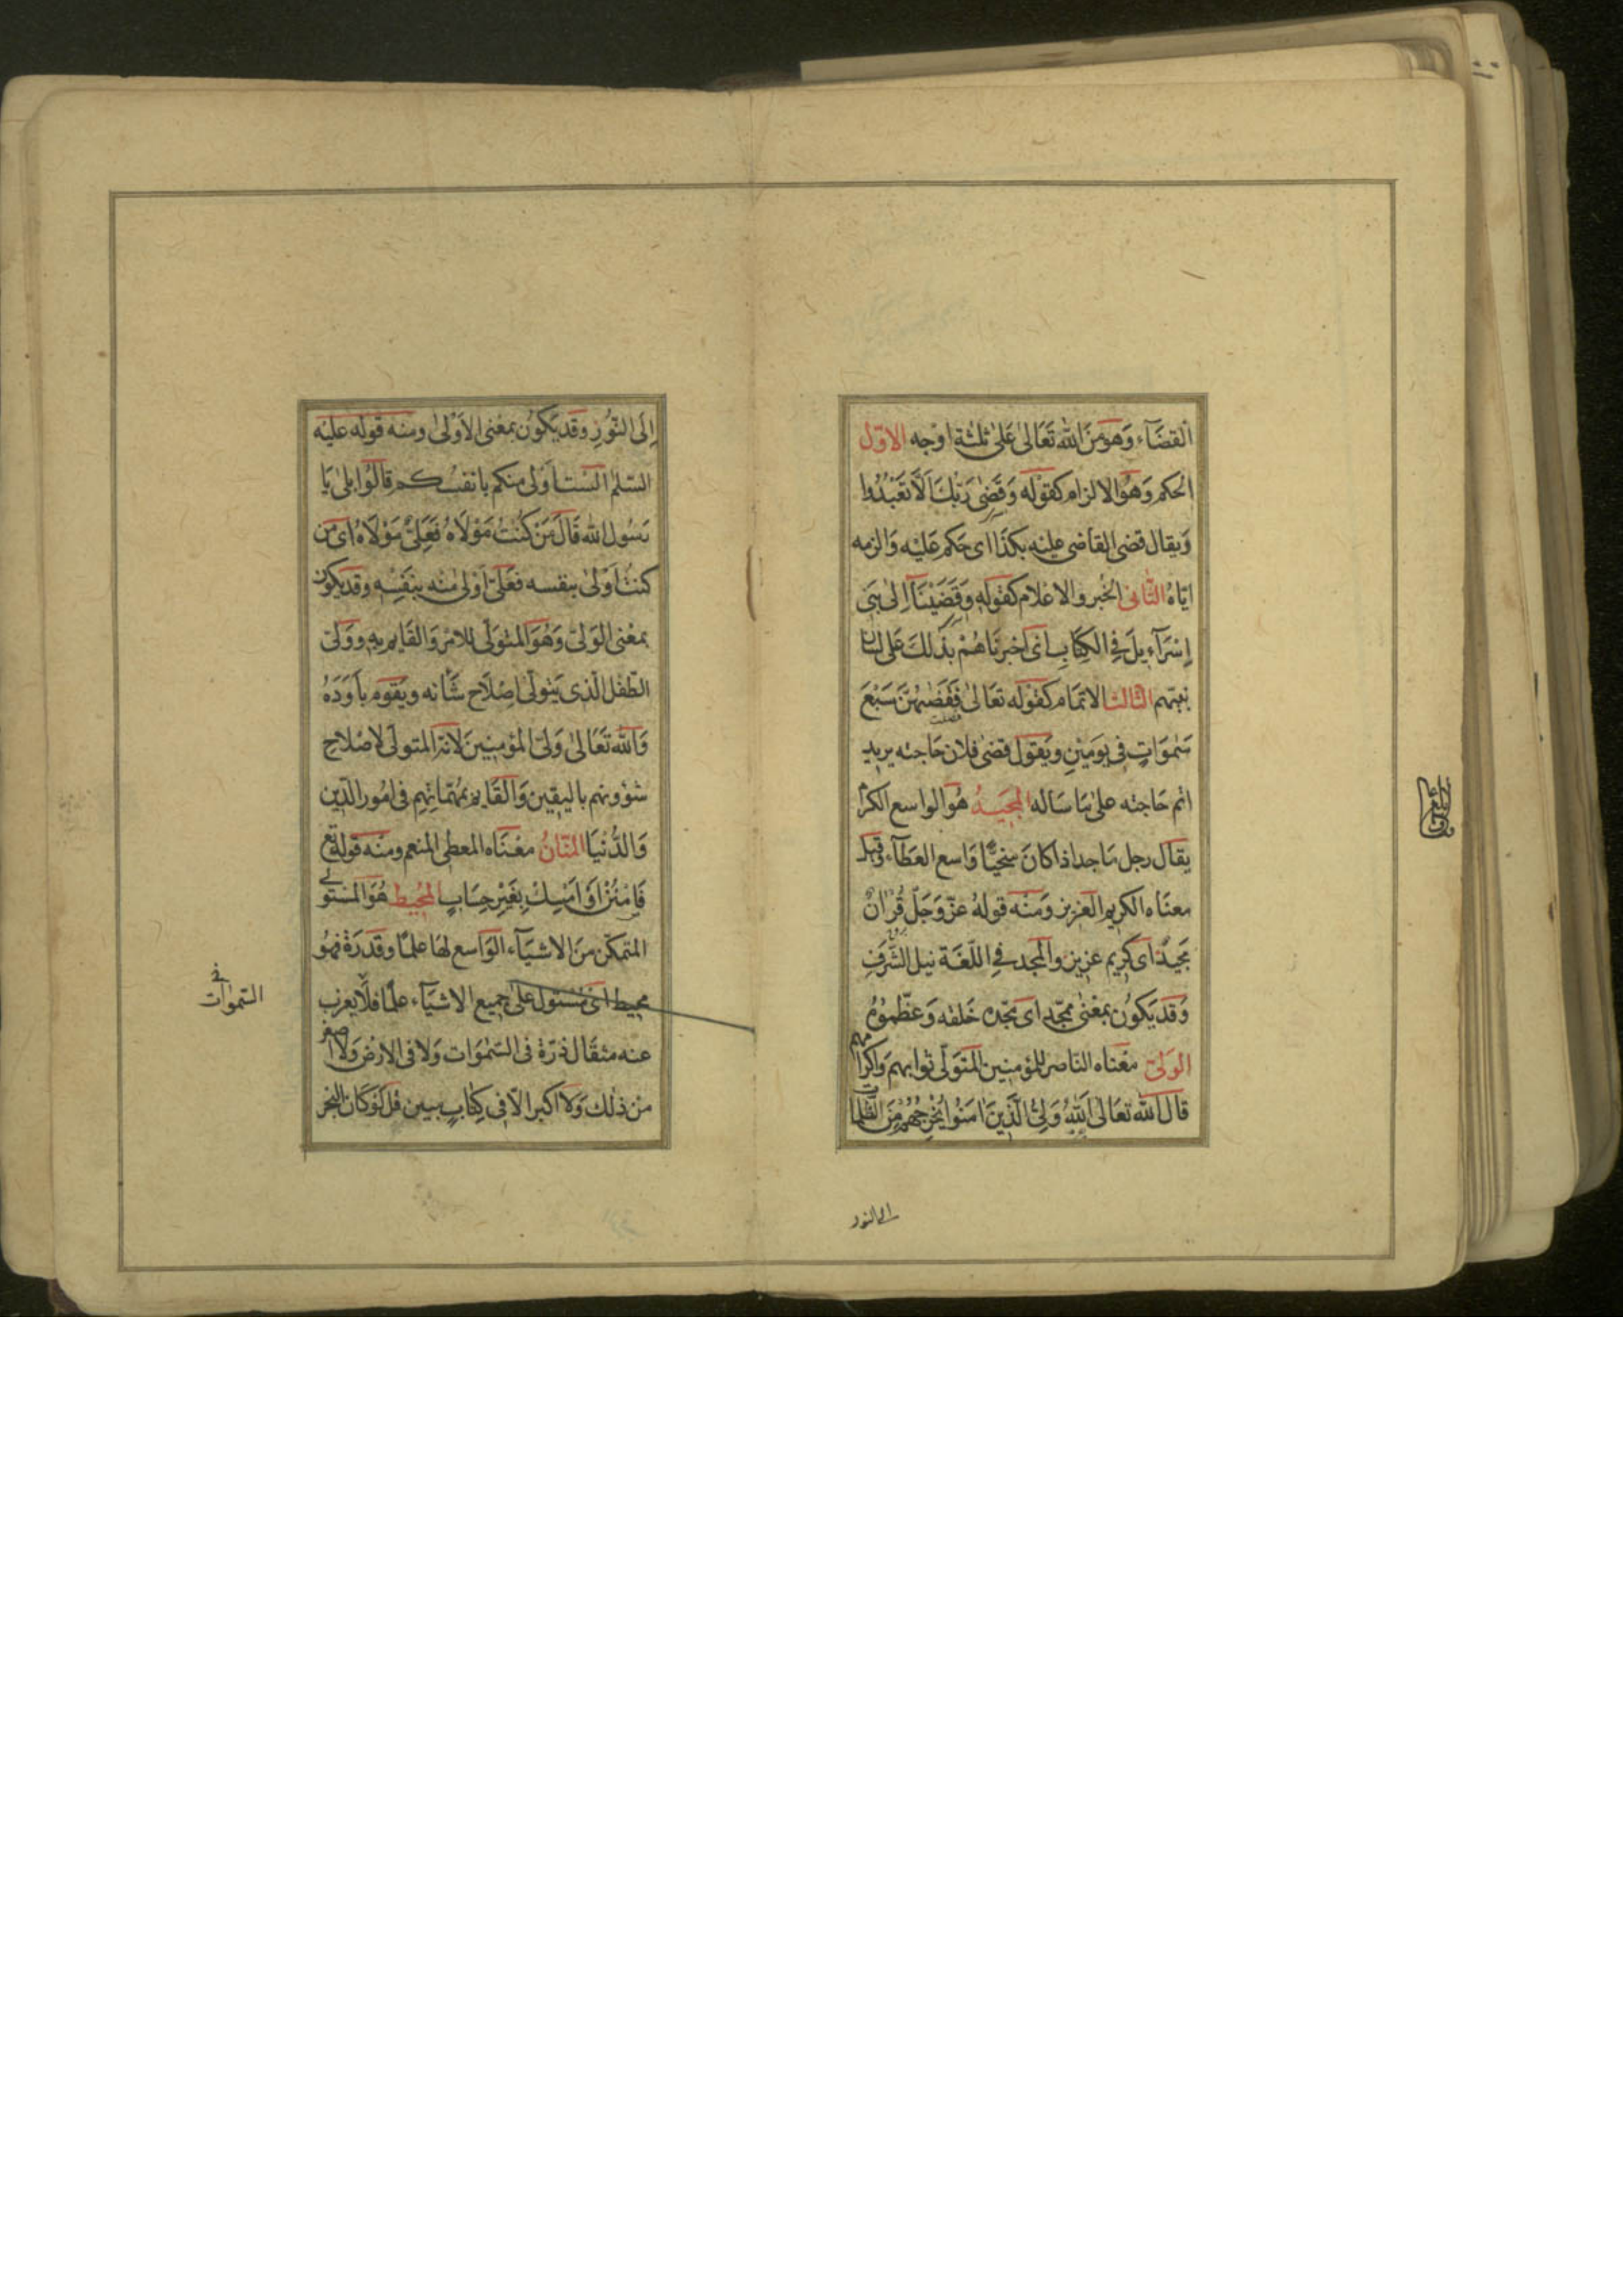 القضاء وهو من الله تعالى على ثلثة اوجه الاوّل
الحكم وهو الالزام كقوله وَقَضىٰ رَبُّكَ اَلّا تَعْبُدُوا
ويقال قضى القاضى عليه بكذا اى حكم عليه والزمه
ايّاهُ الثّانى الخبر والاعلام كقوله وَقَضَيْنَآ اِلىٰ بَنى
اِسْرآءيلَ فِى الكِتابِ اى اخبرناهم بذلك على لسان
نبيّهم الثالث الاتمام كقوله تعالىٰ فَقَضٰهُنَّ سَبْعَ
سَمٰوَاتٍ فى يَومَيْنِ ويقول قضى فلان حاجته يريد
اتم حاجته على ما ساله المجيد هُوَ الواسع الكرم
يقال رجل ماجد اذا كان سخيًّا واسع العطآء وقيل
معناه الكريم العزيز ومنه قولهُ عزّ وَجَلّ قُرْاٰنٌ
مَجيدٌ اى كريم عزيز والمجد فى اللّغة نيل الشَّرَفِ
وَقَد يَكُون بمعْنىٰ ممجّد اى مجّده خَلقه وَعَظّموُهُ
الوَلىّ معْناه الناصر للمؤمنين المتَوَلّى ثوابهم واكرامهم
قال الله تعَالىٰ اَللهُ وَلِىُّ الَّذينَ اٰمَنُوا يُخْرِجُهُمْ مِنَ الظّلمات
الى النور
اِلَى النُّورِ وقد يَكُون بمعْنى الاَوْلىٰ ومنْه قوله عليْه
السّلم الَسْتُ اَوْلى منكم بانفسكم قالُوا بلىٰ يَا
رسُول الله قَالَ مَنْ كُنْتُ مَوْلاهُ فَعَلِىٌّ مَوْلاهُ اى من
كنتُ اَوْلىٰ بنفسه فعَلىّ اَوْلىٰ منْه بنَفْسِه وقد يكون
بمعْنى الوَلىّ وَهُوَ المتوَلّى للامْر وَالقَايم به ووَلىّ
الطّفْل الّذى يَتولّى اصْلاح شَأنه ويَقوم بأوَدَهُ
وَالله تَعَالىٰ وَلىّ المؤمِنينَ لاَنّهُ المتولّى لاصْلاح
شؤونهم باليقين وَالقَايم بمُهمّاتِهِم فى امُور الدّين
وَالدُّنْيَا المنّانُ معْنَاه المعطى المنعم ومنْه قوْله تع
فَامْنُنْ اَوْ اَمْسِكْ بِغَيْرِ حِسَابٍ المُحيط هُوَ المسْتَولى
المتمكّن منَ الاشيآء الوَاسع لها علمًا وقدرَةً فهُو
محيط اى مُسْتول على جميع الاشيآء علمًا فلا يعزب
عنه مثقَال ذرّة فى السّمٰوَات وَلا فى الارْض وَلا اصغر
من ذلك وَلا اكبر الّا فى كِتابٍ مبين قل لَوْ كَانَ البَحْر
فى
السّمٰوات